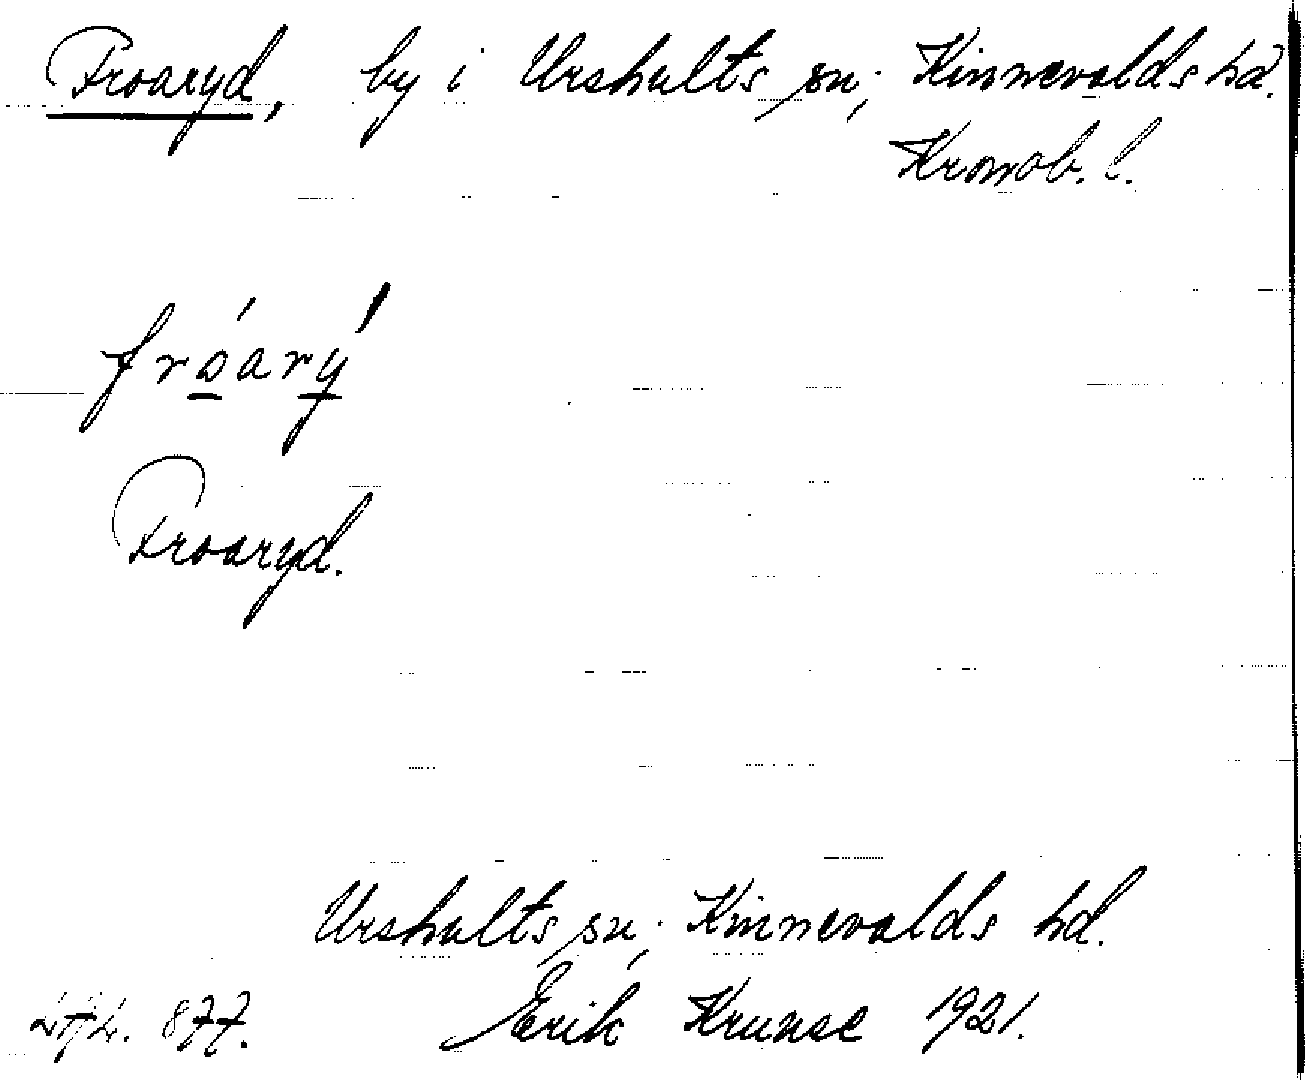 Froaryd, by i Urshults sn; Kinnevalds hd.
Kronob. l.
fróarý
Froaryd.
Urshults sn; Kinnevalds hd.
877. Erik Krunse 1921.